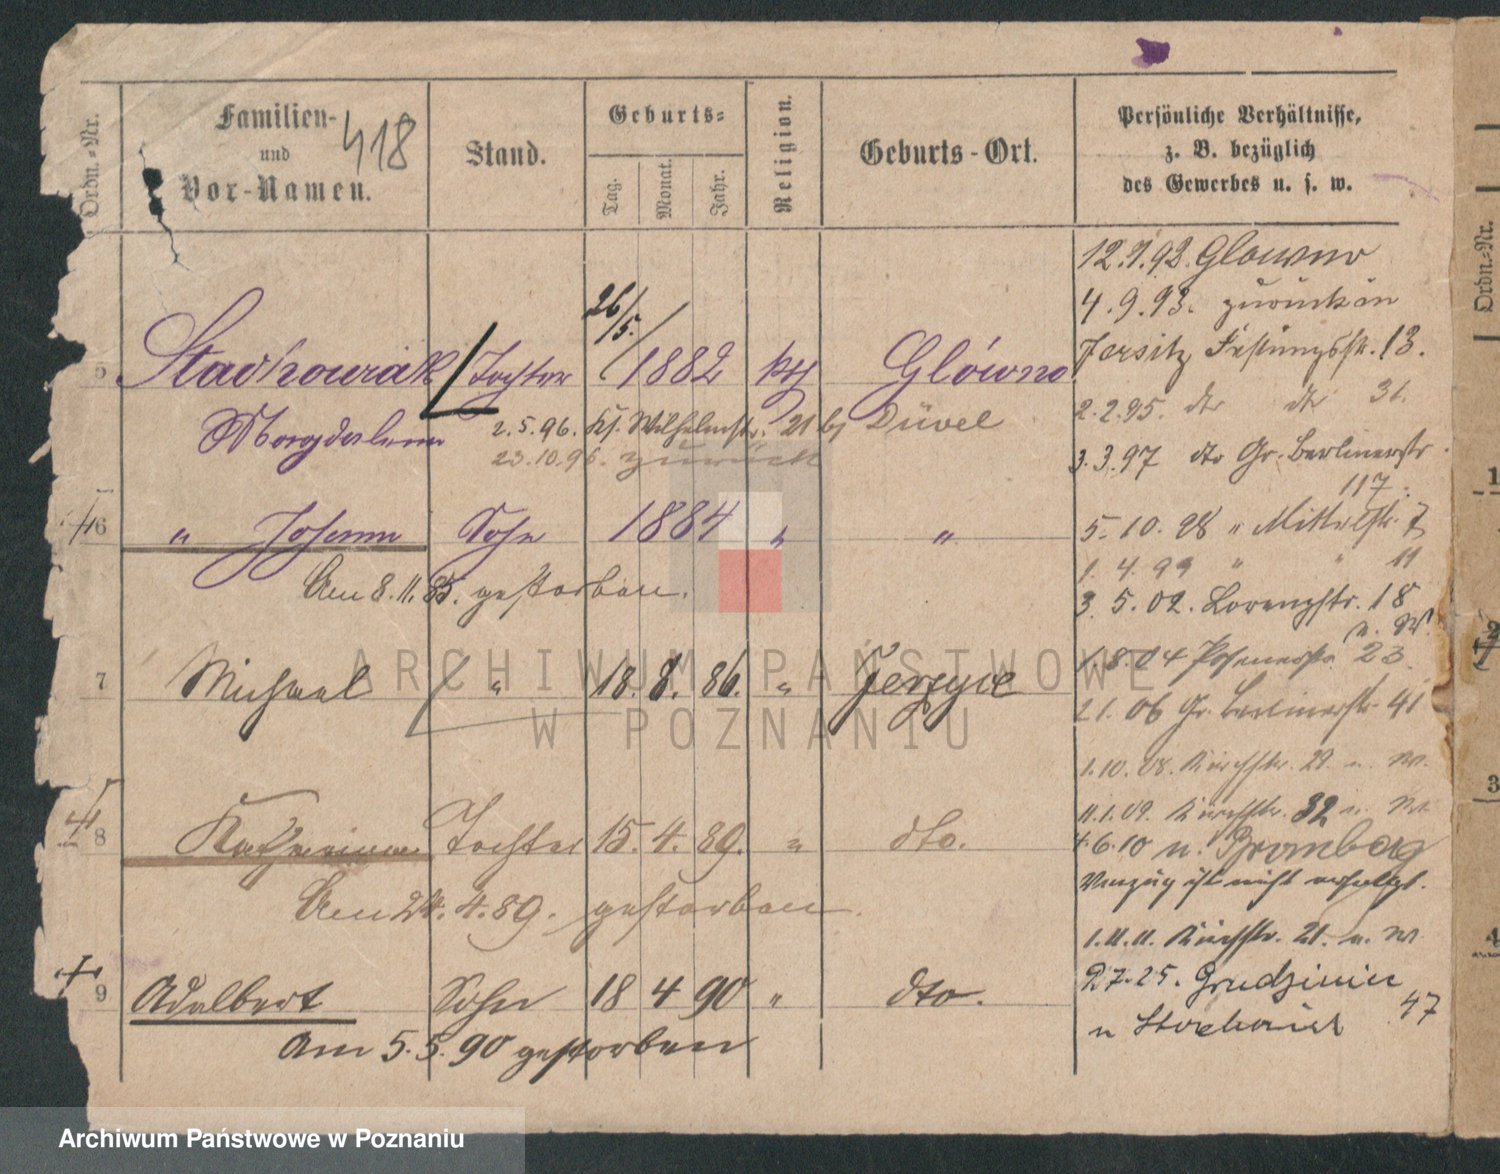 Ordn.-Nr.
Familien-
und
Vor-Namen.
418
Stand.
Geburts-
Tag.
Monat.
Jahr.
Religion.
Geburts-Ort.
Persönliche Verhältnisse,
z. B. bezüglich
des Gewerbes u. s. w.
Ordn.-Nr.
5 Stachowiak Tochter 26/5. 1882 kth Glówno
Magdalena
2.5.96. Wilhelmstr. 21 bei Düvel
23.10.96. zurück
6 " Johann Sohn 1884 " "
Am 8.11.85. gestorben.
7 Michael " 18. 8. 86. " Jerzyce
8 Katharina Tochter 15. 4. 89. " dto.
Am 24. 4. 89. gestorben.
9 Adalbert Sohn 18 4 90 " dto.
Am 5. 5. 90 gestorben
12.7.92. Glowno
4.9.93. zurück in
Jersitz Festungsstr. 13.
2.2.95. dto dto 31.
3.3.97 dto Gr. Berlinerstr.
117.
5.10.98 " Mittelstr. 7
1.4.99 " " 11
3.5.02. Lorenzstr. 18
n. W.
1.8.04 Posenerstr. 23.
2.1.06 Gr. Berlinerstr. 41
1.10.08. Kirchstr. 29. n. W.
11.1.09. Kirchstr. 32 n. W.
4.6.10 n. Bromberg
Verzug ist nicht erfolgt.
1.11.11. Kirchstr. 21. n. W.
2.7.25. Grudzieniec
47
1
2
3
4
ARCHIWUM PAŃSTWOWE
W POZNANIU
Archiwum Państwowe w Poznaniu